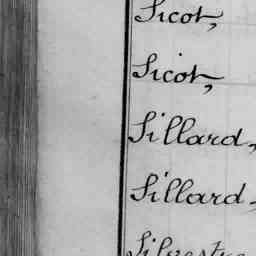 Sicot,
Sicot,
Sillard,
Sillard,
Silvestre